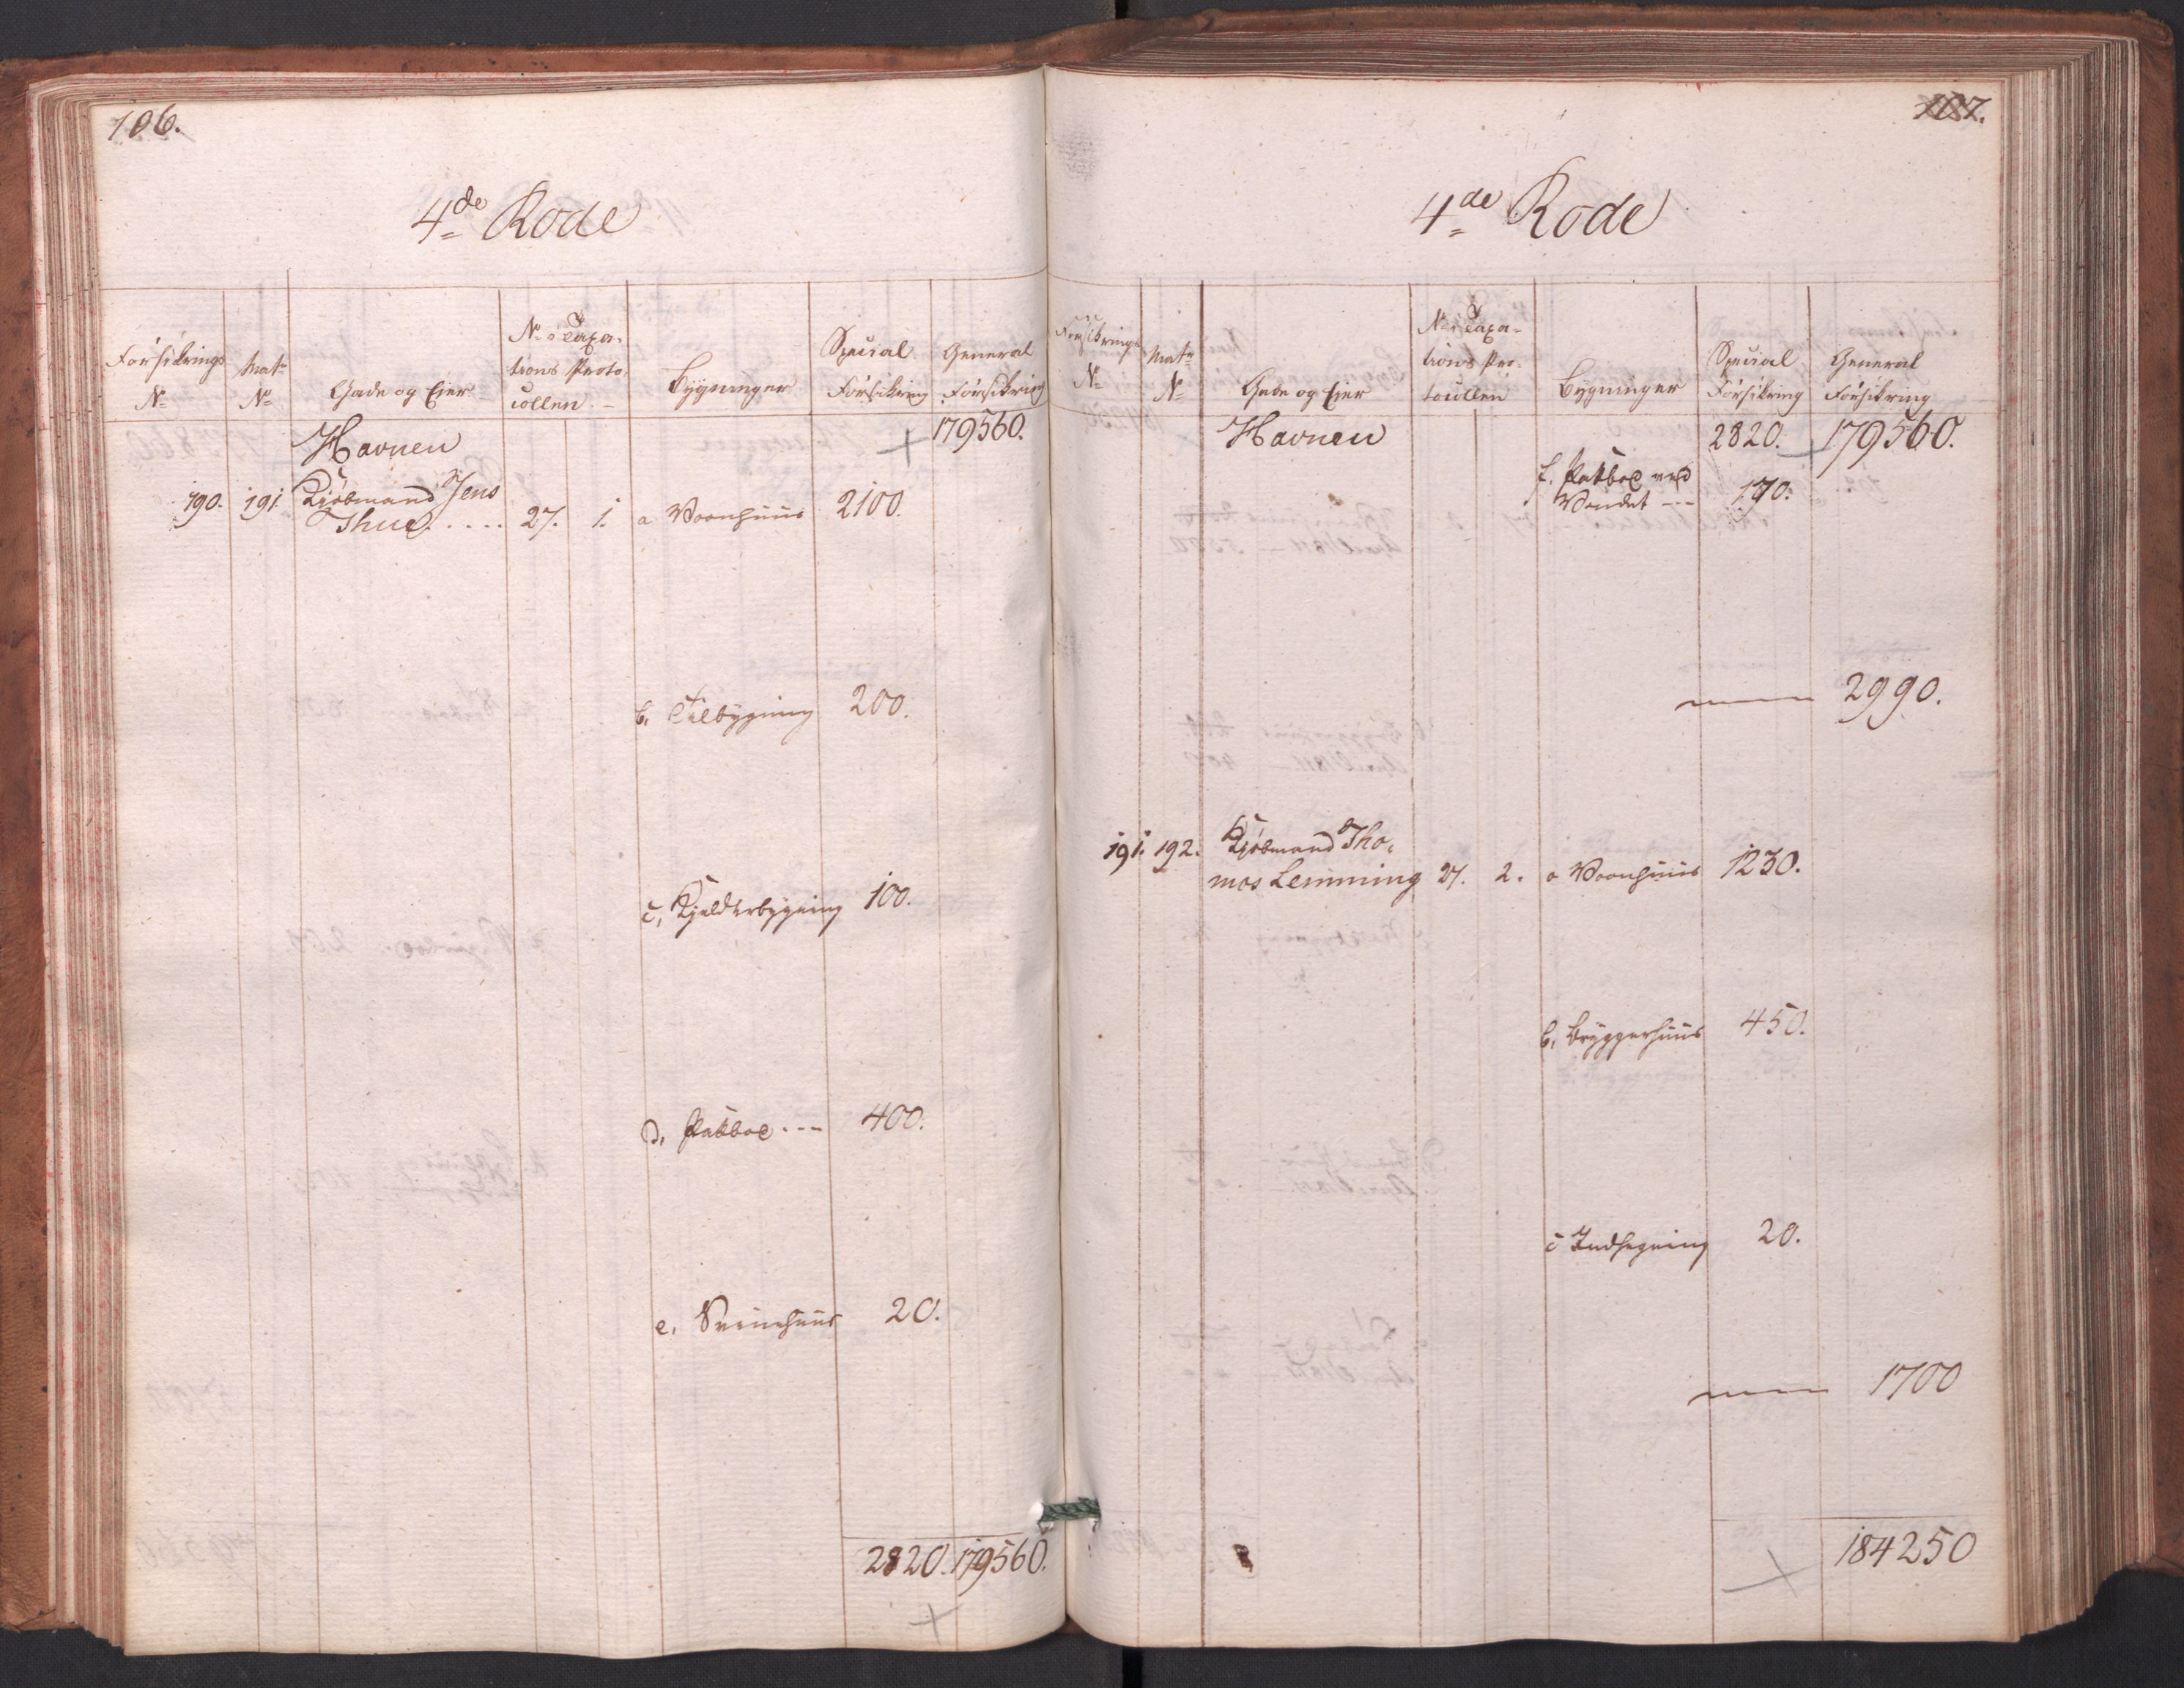 106.
4de Rode
Forsikrings No
Matr No
Gade og Eier
No i Taxa-
tions Proto-
collen
Bygninger
Special Forsikring
General Forsikring
Havnen
179560.
190. 191. Kjøbmand Jens
Thue..... 27. 1. a Vaanhuus 2100.
b, Tilbygning 200.
c, Kjelderbygning 100.
d, Pakboe --- 400.
e, Sviinehuus 20.
2820. 179560.
107.
4de Rode
Forsikrings No
Matr No
Gade og Eier
No i Taxa-
tions Pro-
tocollen
Bygninger
Special Forsikring
General Forsikring
Havnen
2820. 179560.
f. Pakboe ved
Vandet --- 170.
2990.
191. 192. Kjøbmand Tho-
mas Lemming 27. 2. a Vaanhuus 1230.
b, Bryggerhuus 450.
c Indhegning 20.
1700
184250